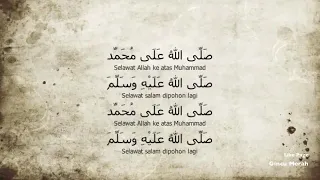 صَلَّى اللهُ عَلَى مُحَمَّدْ
Selawat Allah ke atas Muhammad
صَلَّى اللهُ عَلَيْهِ وَسَلَّمَ
Selawat salam dipohon lagi
صَلَّى اللهُ عَلَى مُحَمَّدْ
Selawat Allah ke atas Muhammad
صَلَّى اللهُ عَلَيْهِ وَسَلَّمَ
Selawat salam dipohon lagi
Merah